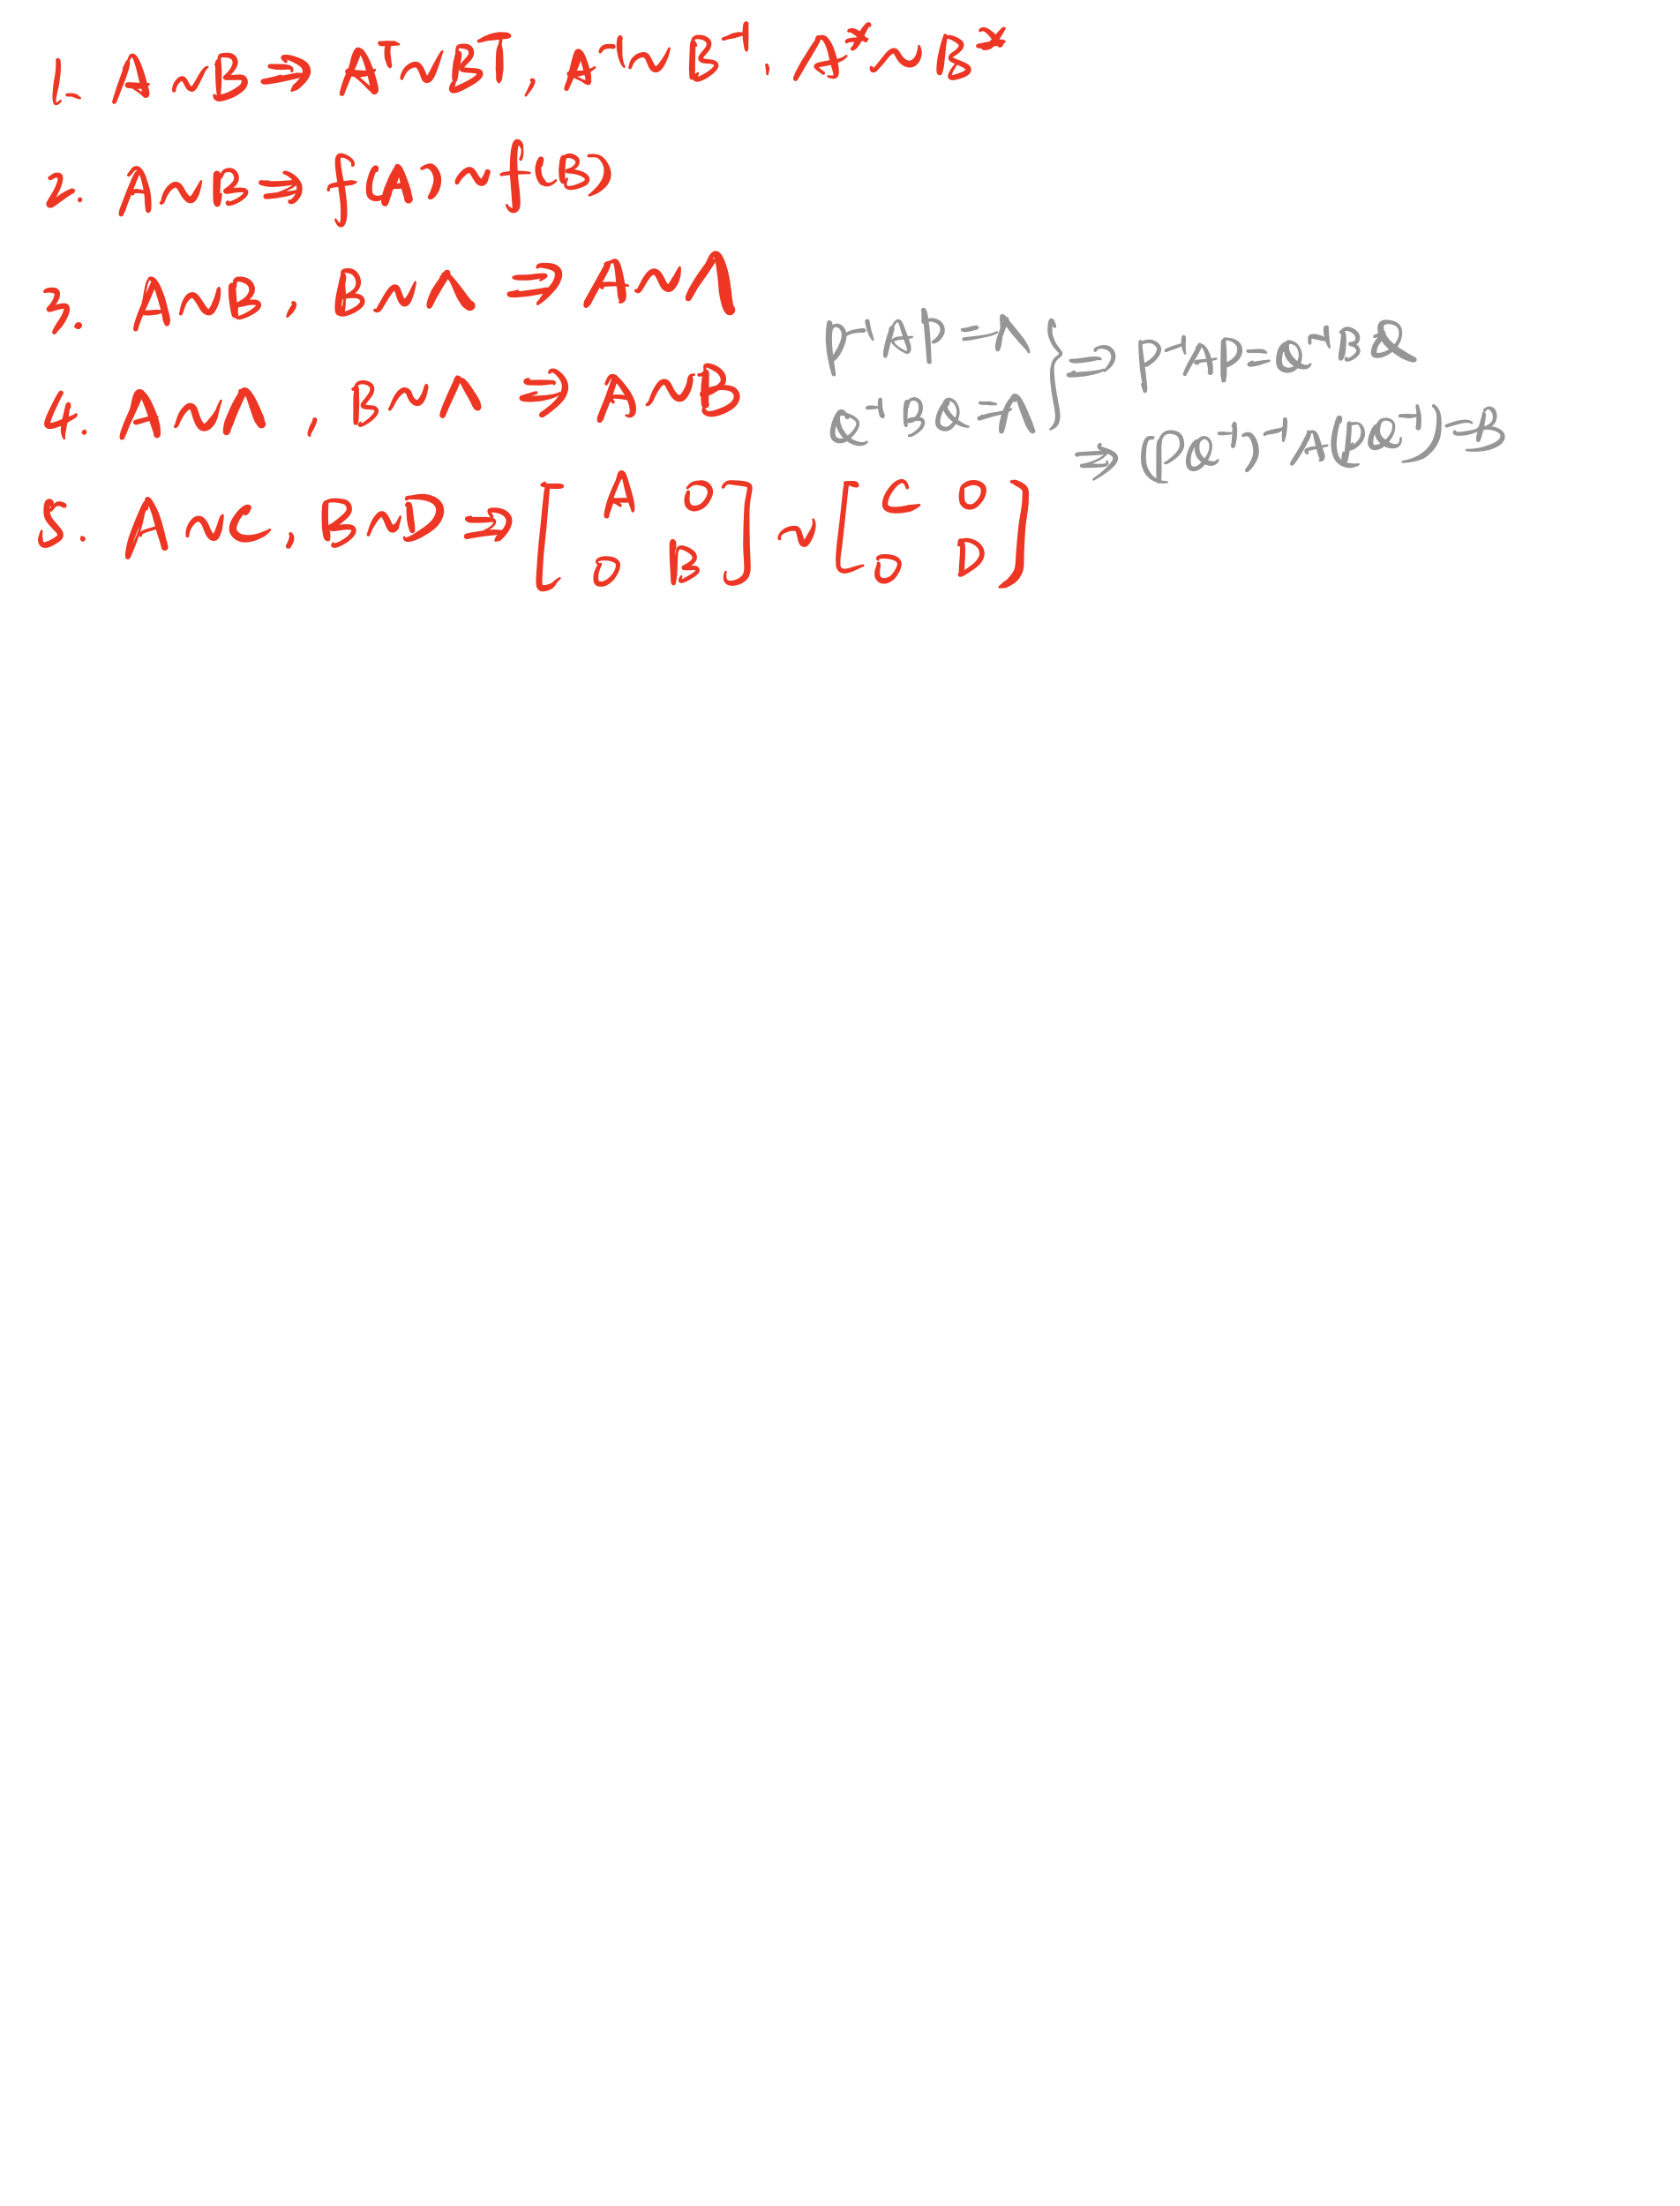 1. A~B⇒Aᵀ~Bᵀ, A⁻¹~B⁻¹, A*~B*
2. A~B⇒f(A)~f(B)
3. A~B, B~Λ ⇒ A~Λ
4. A~Λ, B~Λ ⇒ A~B
P⁻¹AP=Λ
Q⁻¹BQ=Λ } ⇒ P⁻¹AP=Q⁻¹BQ
⇒ (PQ⁻¹)⁻¹A(PQ⁻¹)=B
5. A~C, B~D ⇒ [A 0; 0 B] ~ [C 0; 0 D]